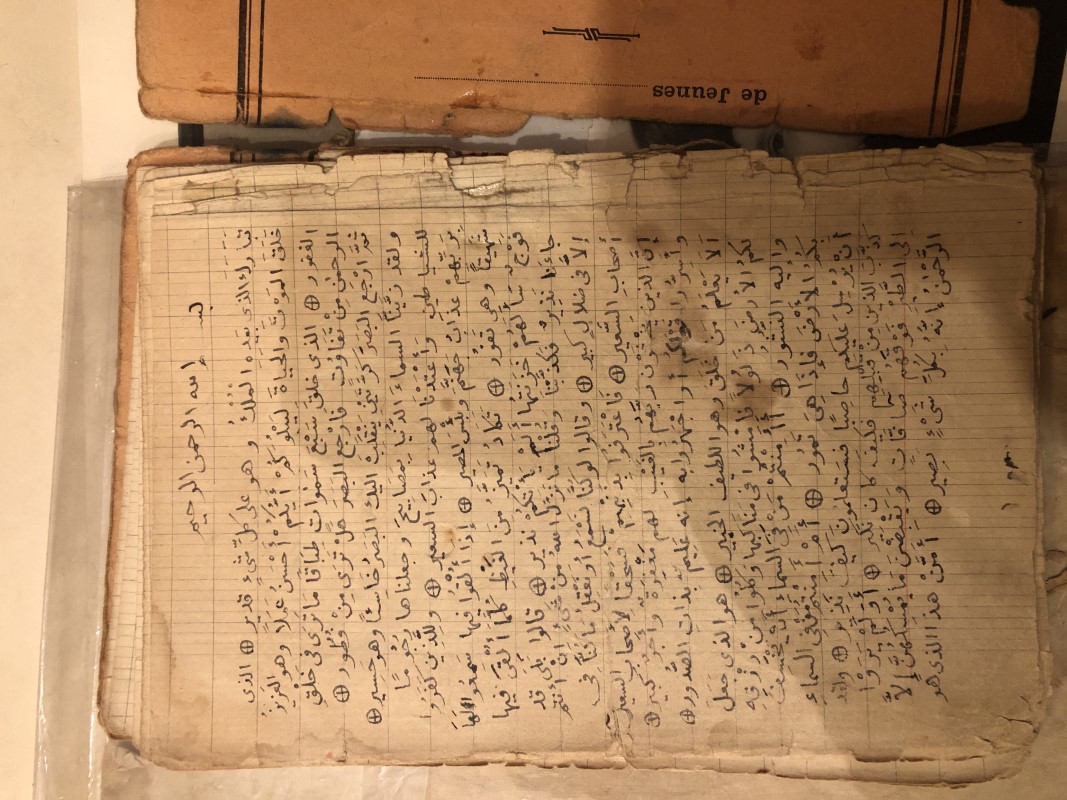 de Jeunes
بسم الله الرحمن الرحيم
تبارك الذي بيده الملك وهو على كل شيء قدير ⊕ الذي
خلق الموت والحياة ليبلوكم أيكم أحسن عملا وهو العزيز
الغفور ⊕ الذي خلق سبع سموات طباقا ما ترى في خلق
الرحمن من تفاوت فارجع البصر هل ترى من فطور ⊕
ثم ارجع البصر كرتين ينقلب اليك البصر خاسئا وهو حسير ⊕
ولقد زينا السماء الدنيا بمصابيح وجعلناها رجوما
للشياطين وأعتدنا لهم عذاب السعير ⊕ وللذين كفروا
بربهم عذاب جهنم وبئس المصير ⊕ إذا ألقوا فيها سمعوا لها
شهيقا وهي تفور ⊕ تكاد تميز من الغيظ كلما ألقي فيها
فوج سألهم خزنتها ألم يأتكم نذير ⊕ قالوا بلى قد
جاءنا نذير فكذبنا وقلنا ما نزل الله من شيء إن أنتم
إلا في ضلال كبير ⊕ وقالوا لو كنا نسمع أو نعقل ما كنا في
أصحاب السعير ⊕ فاعترفوا بذنبهم فسحقا لأصحاب السعير
إن الذين يخشون ربهم بالغيب لهم مغفرة وأجر كبير ⊕
وأسروا قولكم أو اجهروا به إنه عليم بذات الصدور ⊕
ألا يعلم من خلق وهو اللطيف الخبير ⊕ هو الذي جعل
لكم الأرض ذلولا فامشوا في مناكبها وكلوا من رزقه
وإليه النشور ⊕ أأمنتم من في السماء أن يخسف
بكم الأرض فإذا هي تمور ⊕ أم أمنتم من في السماء
أن يرسل عليكم حاصبا فستعلمون كيف نذير ⊕ ولقد
كذب الذين من قبلهم فكيف كان نكير ⊕ أولم يروا
إلى الطير فوقهم صافات ويقبضن ما يمسكهن إلا
الرحمن إنه بكل شيء بصير ⊕ أمن هذا الذي هو